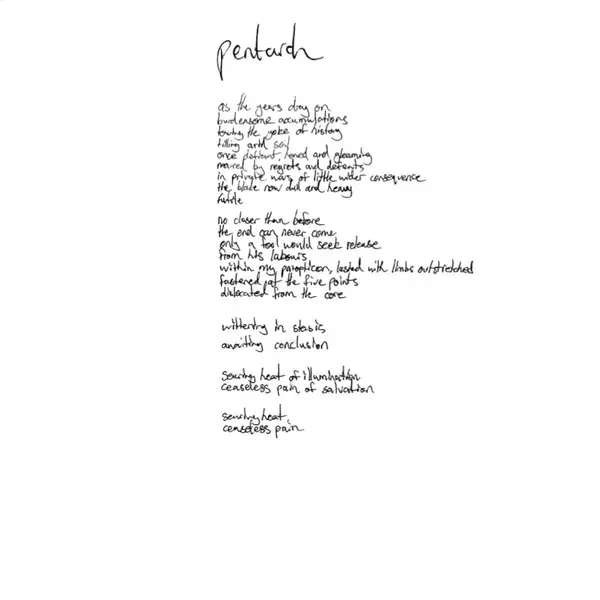 pentarch
as the years drag on
burdensome accumulations
towing the yoke of history
tilling arid soil
once defiant, honed and gleaming
marred by regrets and defeats
in private wars of little wider consequence
the blade now dull and heavy
futile
no closer than before
the end can never come
only a fool would seek release
from his labours
within my panopticon, lashed with limbs outstretched
fastened at the five points
dislocated from the core
withering in stasis
awaiting conclusion
searing heat of illumination
ceaseless pain of salvation
searing heat,
ceaseless pain